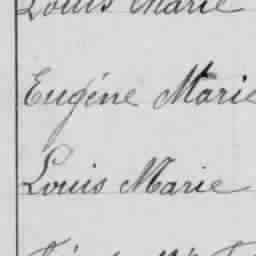 Louis Marie
Eugéne Marie
Louis Marie